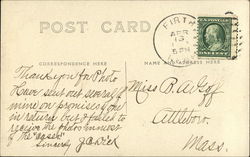 POST CARD
FIRTH
APR
13
5 PM
CORRESPONDENCE HERE
NAME AND ADDRESS HERE
Thank you for Photo
Have sent out several of
mine on promises of one
in return but I failed to
receive the photo in most
of the "cases"
Sincerely
Miss R. W. Goff
Attleboro
Mass.